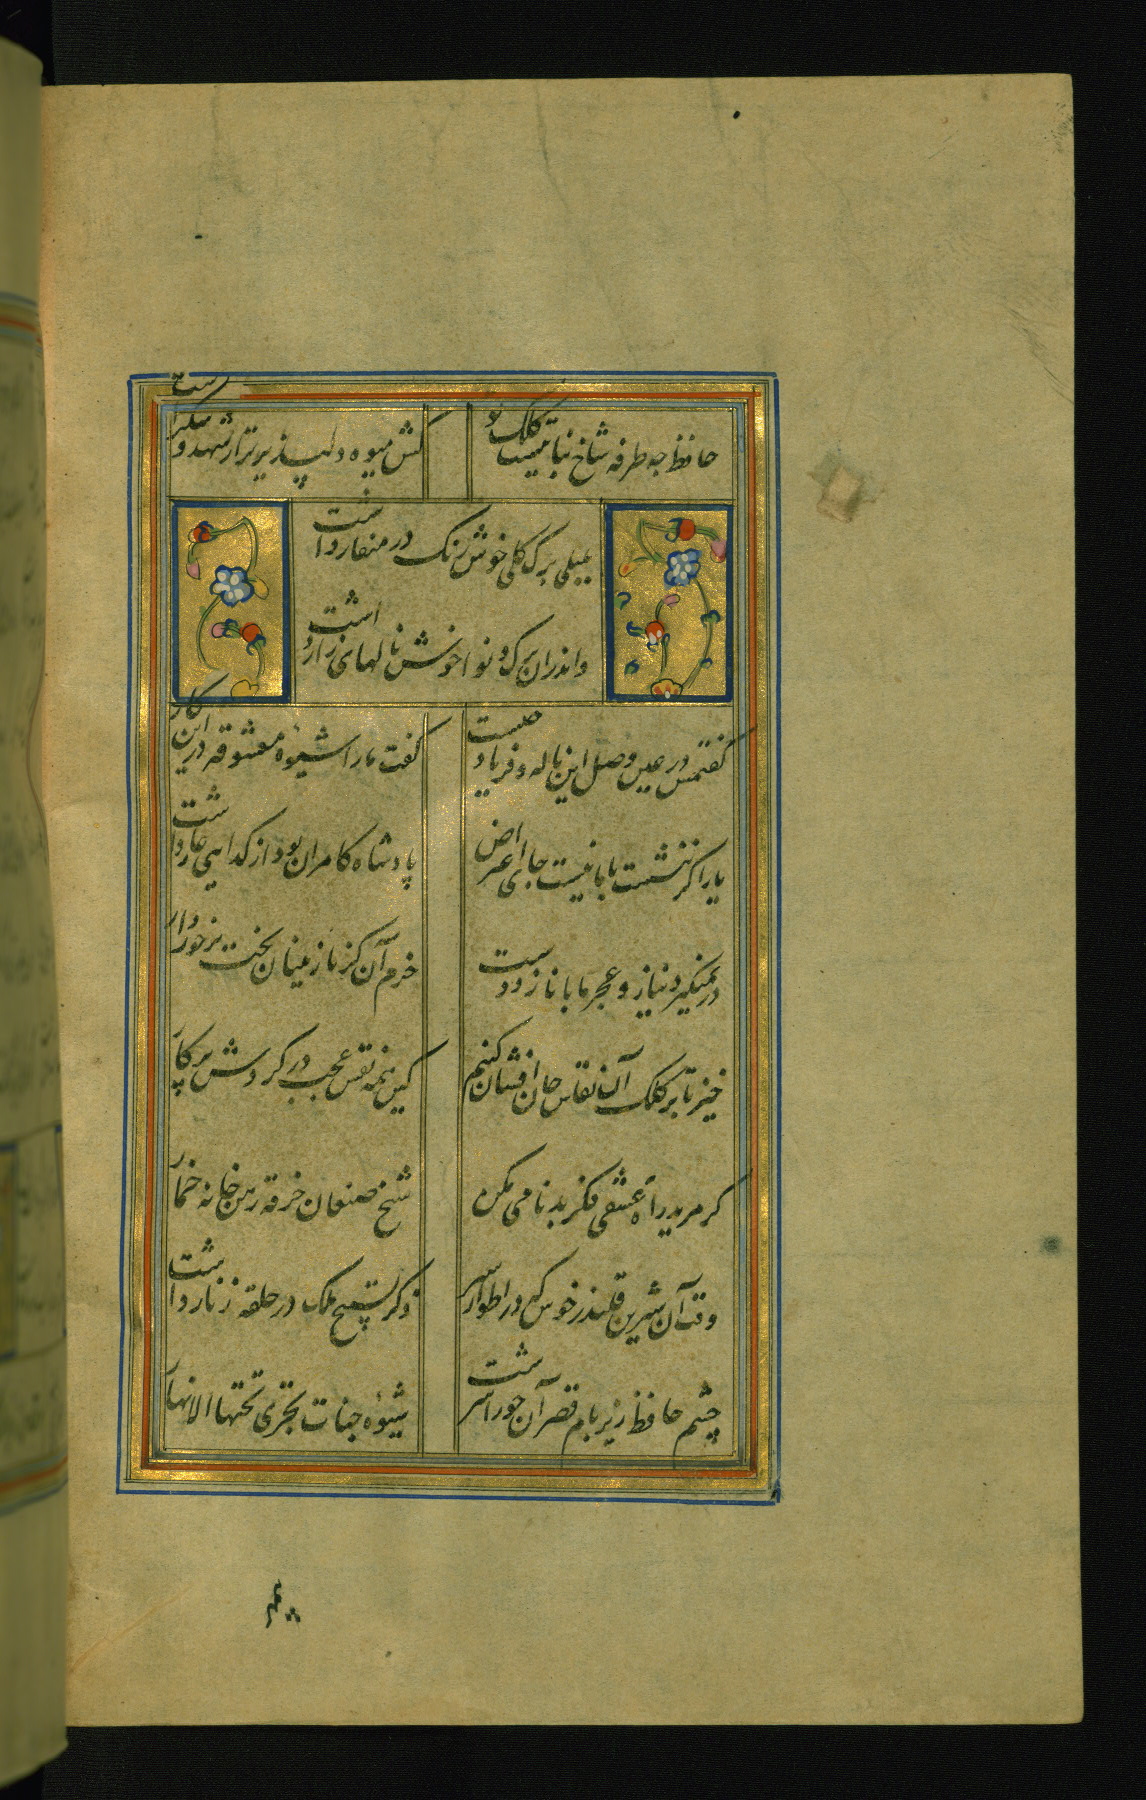 حافظ چه طرفه شاخ نباتیست کلک تو
کش میوه دلپذیرتر از شهد و شکر است
بلبلی برک کلی خوش رنک در منقار داشت
واندران برک و نوا خوش نالهای زار داشت
کفتمش در عین وصل این ناله و فریاد چیست
کفت مارا شیوۀ معشوقه در این کار
یار اکر ننشست با ما نیست جای اعتراض
پادشاه کامران بود از کدایی عار داشت
در نمیکیرد نیاز و عجز ما با ناز دوست
خرم آن کز نازنینان بخت برخوردار
خیز تا بر کلک آن نقاش جان افشان کنیم
کین همه نقش عجب در کردش پرکار
کر مرید راه عشقی فکر بدنامی مکن
شیخ صنعان خرقه رهن خانه خمار
وقت آن شیرین قلندر خوش که در اطوار سیر
ذکر تسبیح ملک در حلقه زنار داشت
چشم حافظ زیر بام قصر آن حورا سرشت
شیوه جنات تجری تحتها الانهار